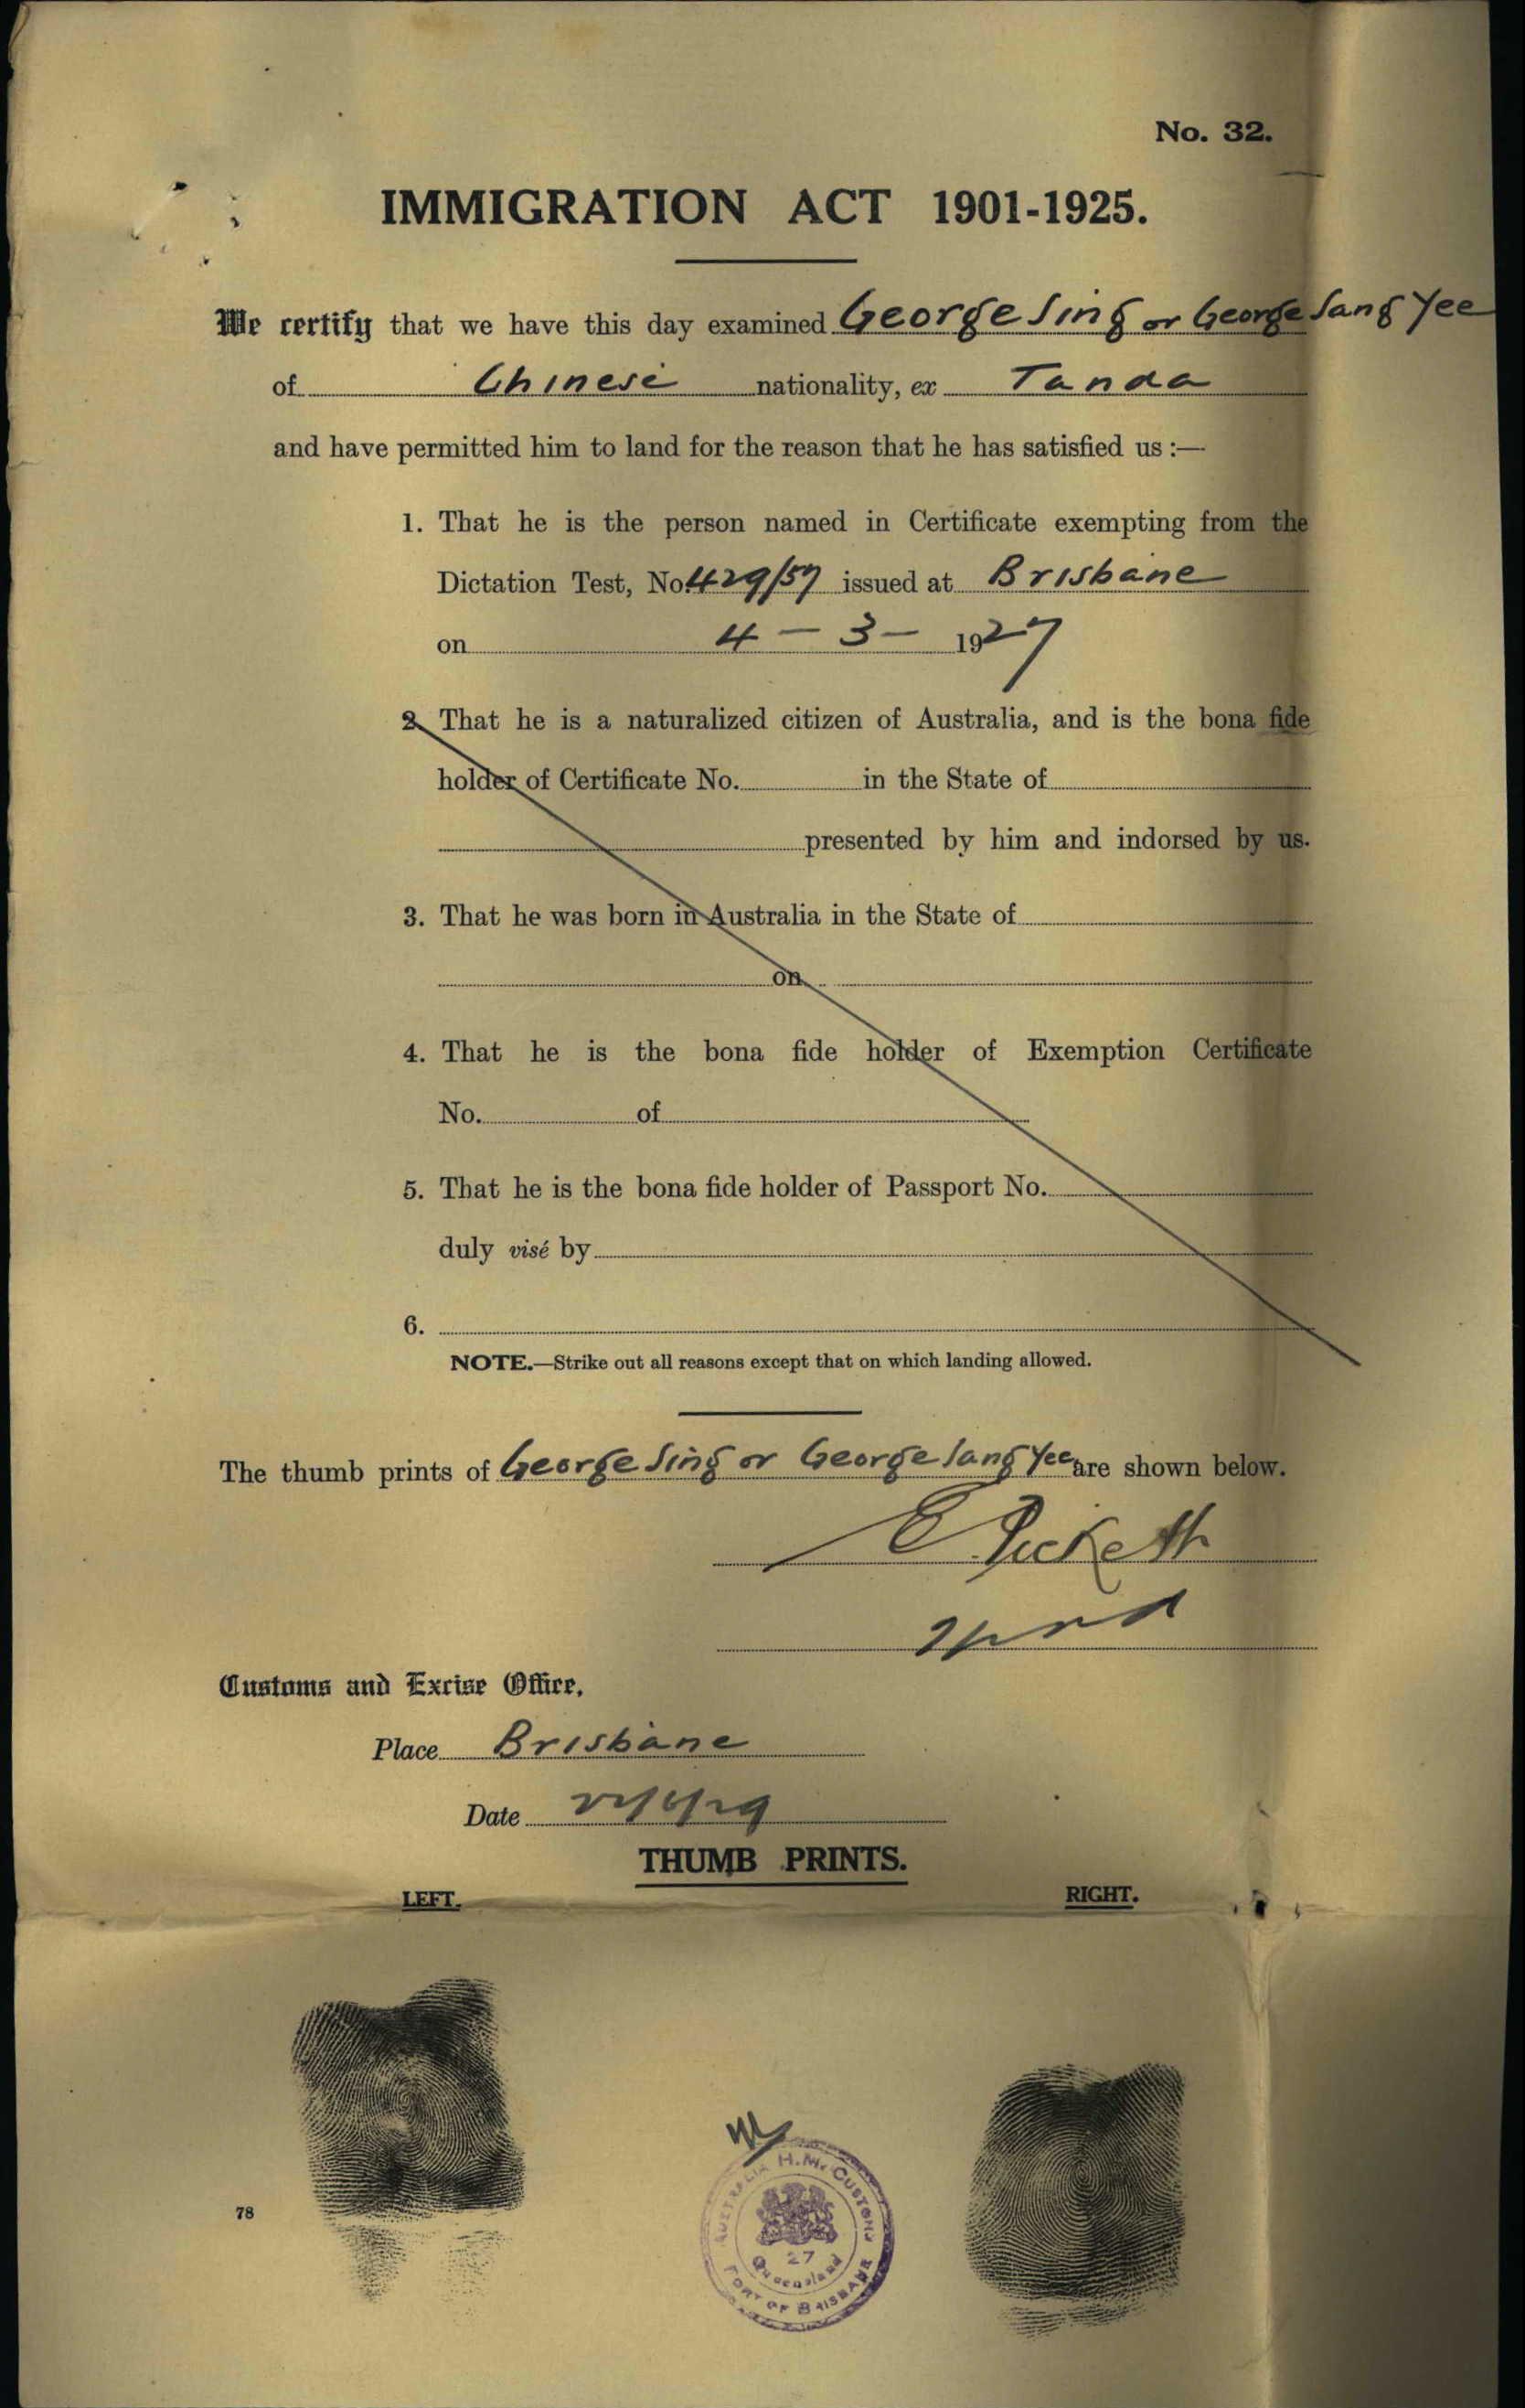 No. 32.
IMMIGRATION ACT 1901-1925.
We certify that we have this day examined George Sing or George Sang Yee
of Chinese nationality, ex Tanda
and have permitted him to land for the reason that he has satisfied us :—
1. That he is the person named in Certificate exempting from the
Dictation Test, No. 429/57 issued at Brisbane
on 4 - 3 - 1927
2. That he is a naturalized citizen of Australia, and is the bona fide
holder of Certificate No. in the State of
presented by him and indorsed by us.
3. That he was born in Australia in the State of
on
4. That he is the bona fide holder of Exemption Certificate
No. of
5. That he is the bona fide holder of Passport No.
duly visé by
6.
NOTE.—Strike out all reasons except that on which landing allowed.
The thumb prints of George Sing or George Sang Yee are shown below.
E Pickett
Customs and Excise Office,
Place Brisbane
Date
THUMB PRINTS.
LEFT.
RIGHT.
78
AUSTRALIA H.M. CUSTOMS
27
Queensland
PORT OF BRISBANE